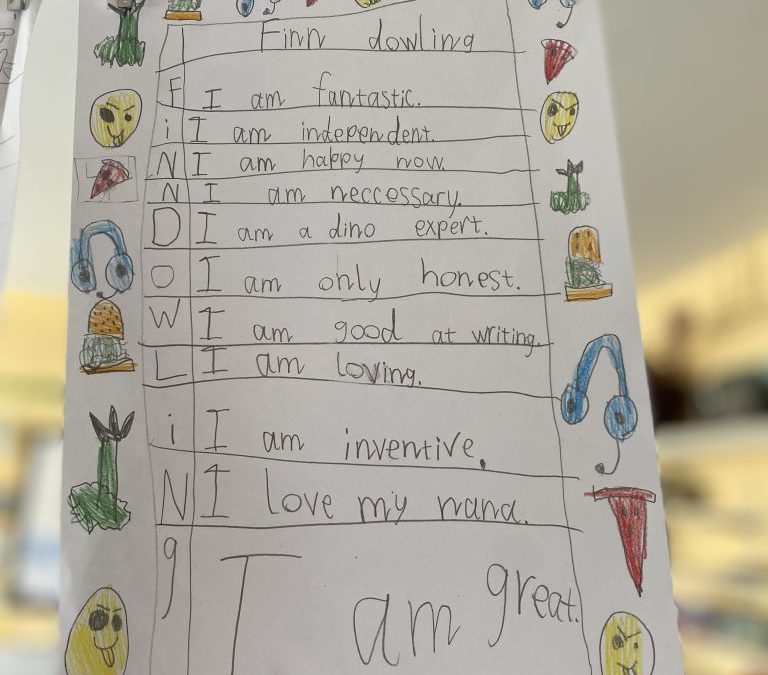 Finn dowling
F I am fantastic.
i I am independent.
N I am happy now.
N I am neccessary.
D I am a dino expert.
O I am only honest.
W I am good at writing.
L I am loving.
i I am inventive.
N I love my nana.
g I am great.